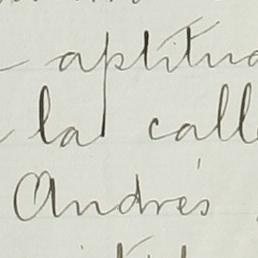 aptitud
la calle
Andrés